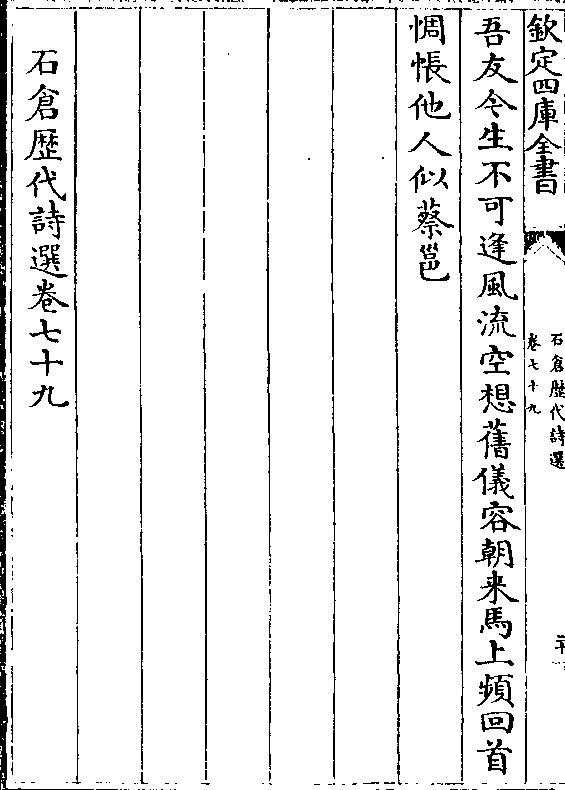 欽定四庫全書
石倉歴代詩選
卷七十九
吾友今生不可逢風流空想舊儀容朝来馬上頻回首
惆悵他人似蔡邕
石倉歴代詩選卷七十九